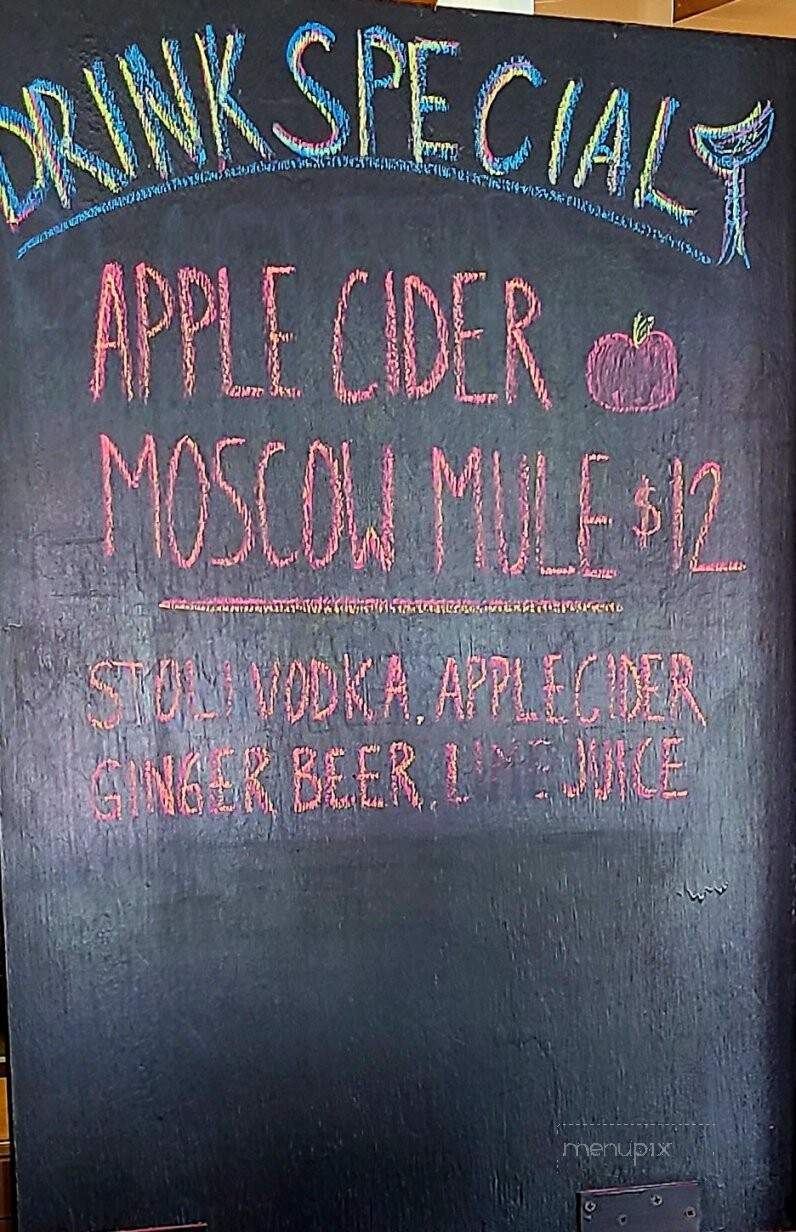 DRINK SPECIAL
APPLE CIDER
MOSCOW MULE $12
STOLI VODKA, APPLE CIDER
GINGER BEER, LIME JUICE
menupix